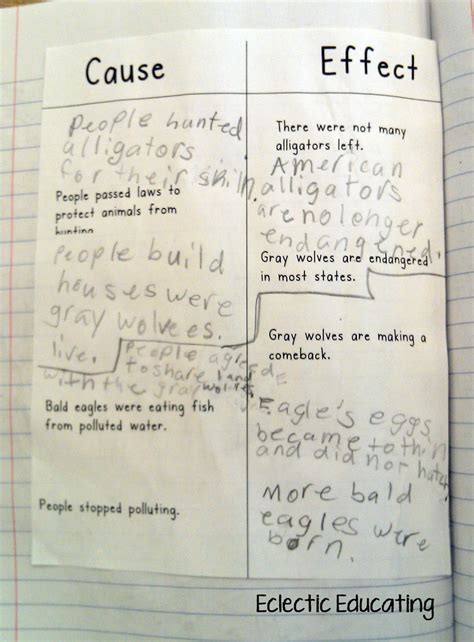 Cause
Effect
People hunted
alligators
for their skin.
There were not many
alligators left.
People passed laws to
protect animals from
hunting
American
alligators
are no longer
endangered.
People build
houses were
gray wolvees.
live.
Gray wolves are endangered
in most states.
People agreed
to share land
with the gray wolves.
Gray wolves are making a
comeback.
Bald eagles were eating fish
from polluted water.
Eagle's eggs
became to thin
and did not hatch.
People stopped polluting.
More bald
eagles were
born.
Eclectic Educating